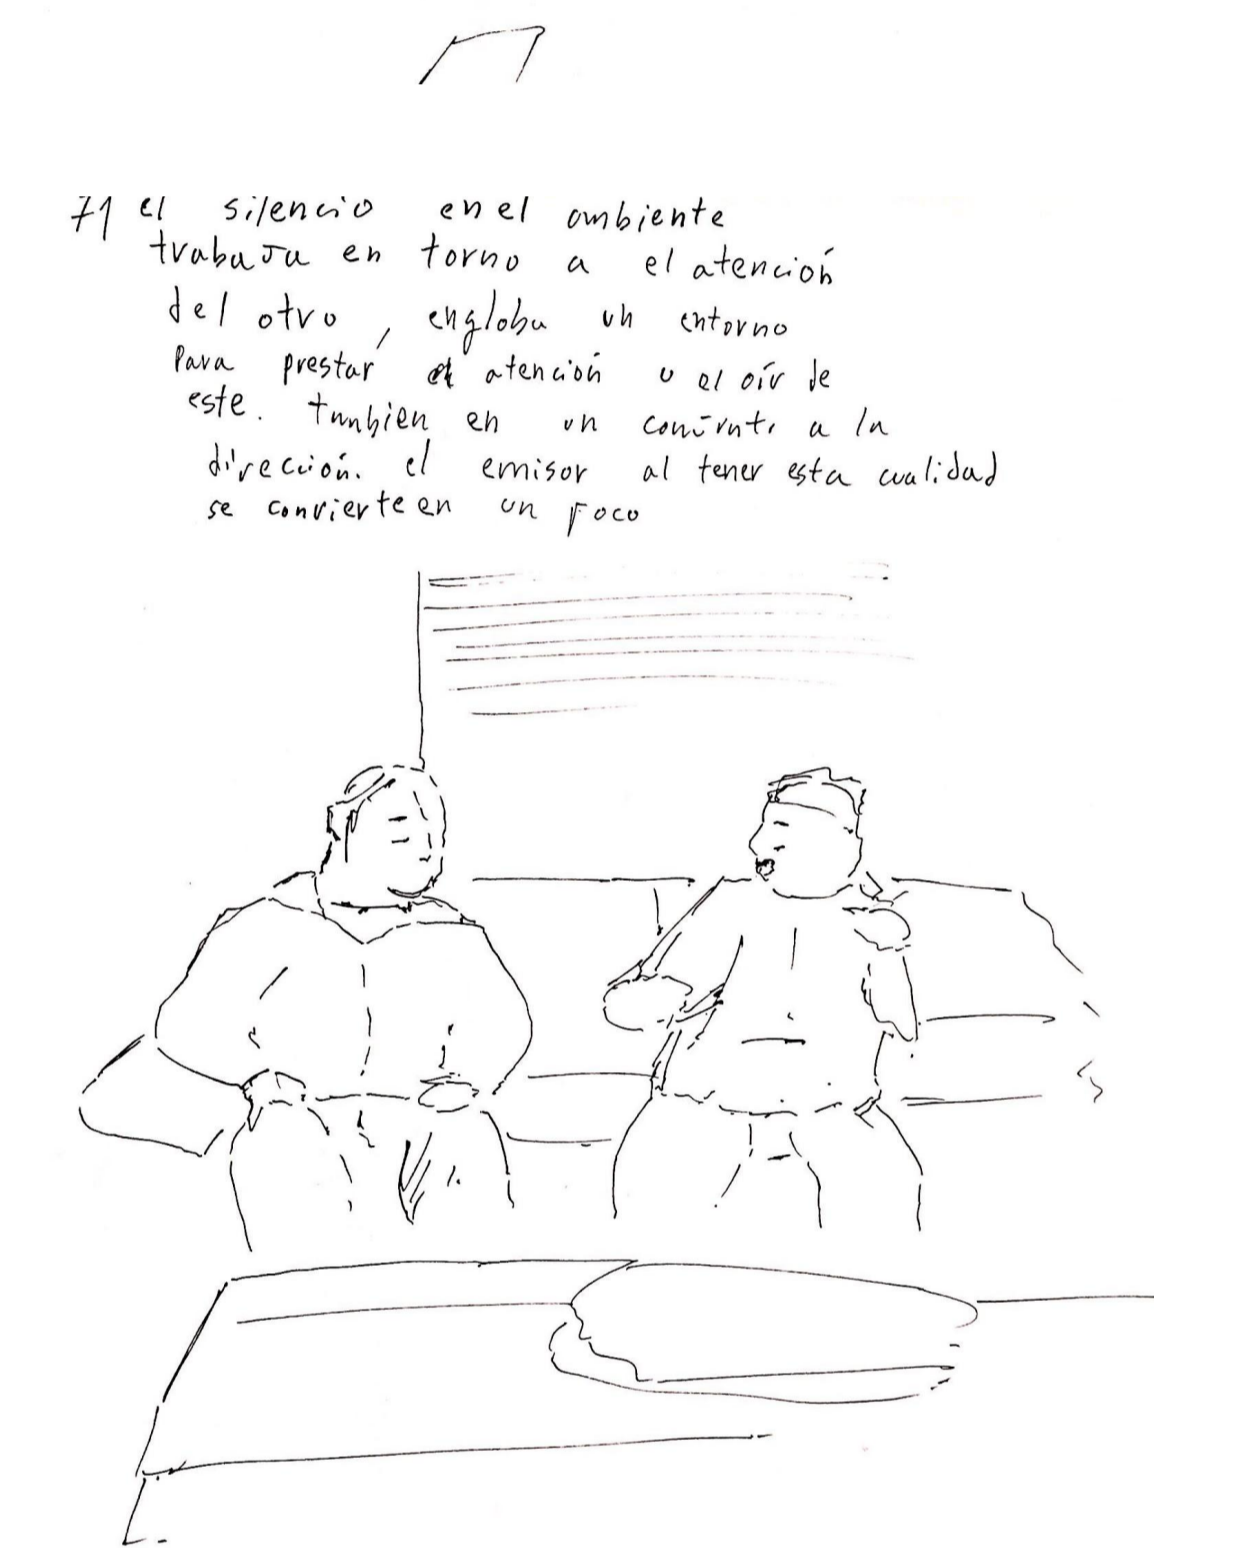 71 el silencio en el ambiente
trabaja en torno a el atención
del otro, engloba un entorno
para prestar atención u el oír de
este. tanbien en un a la
direción. el emisor al tener esta cualidad
se convierte en un foco